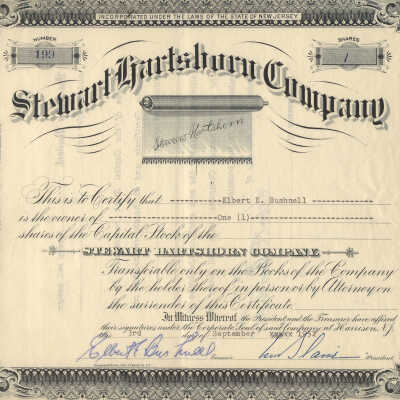 INCORPORATED UNDER THE LAWS OF THE STATE OF NEW JERSEY
NUMBER
199
SHARES
1
Stewart Hartshorn Company
Stewart Hartshorn
This is to Certify that ----------Elbert E. Bushnell ----------
is the owner of ----------One (1)----------
shares of the Capital Stock of the
STEWART HARTSHORN COMPANY.
Transferable only on the Books of the Company
by the holder thereof in person or by Attorney on
the surrender of this Certificate.
In Witness Whereof, the President and the Treasurer have affixed
their signatures under the Corporate Seal of said Company at Harrison, N.J.
this 3rd day of September
Elbert E. Bushnell
Treasurer
President